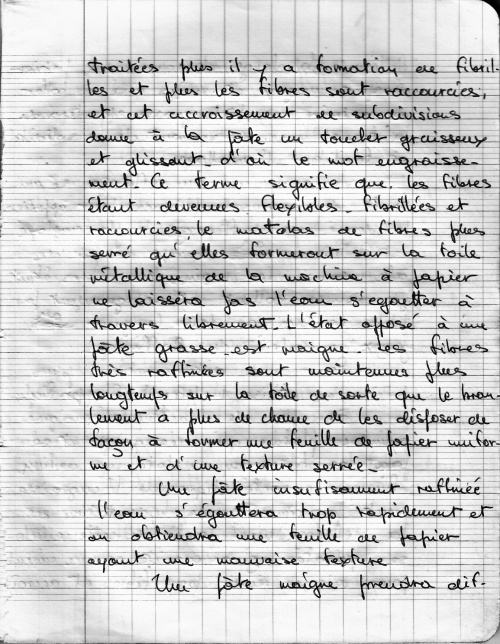 traitées plus il y a formation de fibril-
les et plus les fibres sont raccourcies,
et cet accroissement de subdivisions
donne à la pâte un toucher graisseux
et glissant d'où le mot engraisse-
ment. Ce terme signifie que les fibres
étant devenues flexibles. fibrillées et
raccourcies, le matelas de fibres plus
serré qu'elles formeront sur la toile
métallique de la machine à papier
ne laissera pas l'eau s'egoutter à
travers librement. L'état opposé à une
pâte grasse est maigre. Les fibres
très raffinées sont maintenues plus
longtemps sur la toile de sorte que le bran-
lement a plus de chance de les disposer de
façon à former une feuille de papier unifor-
me et d'une texture serrée.
Une pâte insufisamment raffinée
l'eau s'égouttera trop rapidement et
on obtiendra une feuille de papier
ayant une mauvaise texture
Une pâte maigre prendra dif-